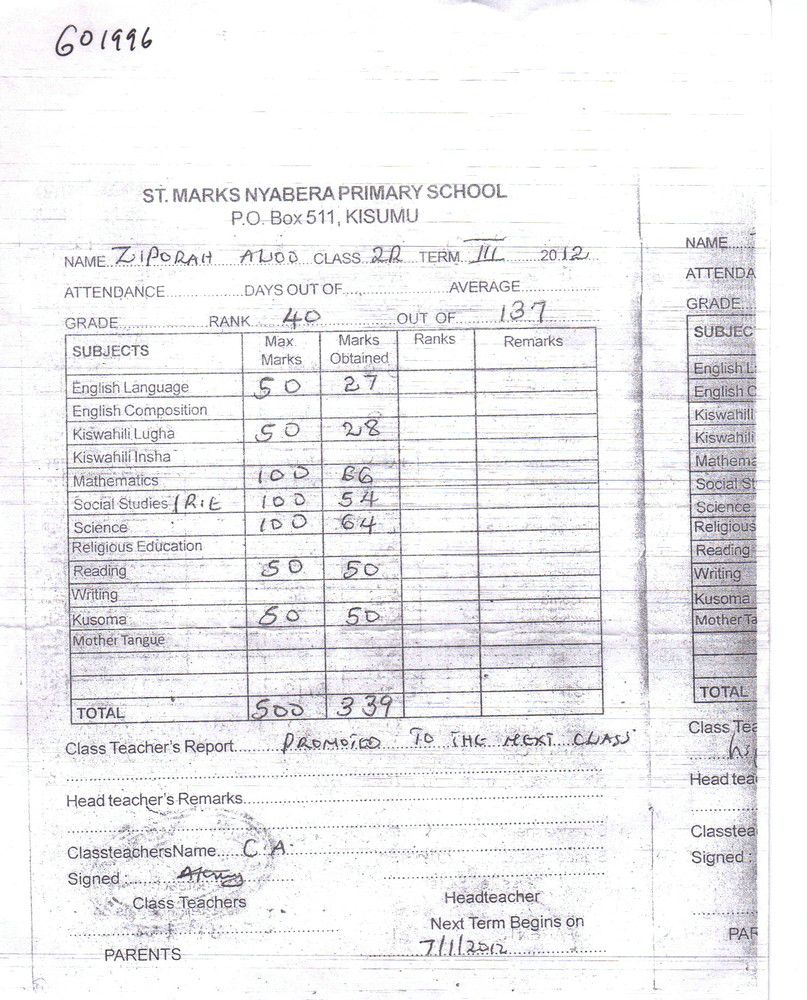 GO1996
ST. MARKS NYABERA PRIMARY SCHOOL
P.O. Box 511, KISUMU
NAME ZIPORAH CLASS 2R TERM III 2012
ATTENDANCE DAYS OUT OF AVERAGE
GRADE RANK 40 OUT OF 137
SUBJECTS Max Marks Marks Obtained Ranks Remarks
English Language 50 27
English Composition
Kiswahili Lugha 50 28
Kiswahili Insha
Mathematics 100 66
Social Studies / R.E 100 54
Science 100 64
Religious Education
Reading 50 50
Writing
Kusoma 50 50
Mother Tangue
TOTAL 500 339
Class Teacher's Report PROMOTED TO THE NEXT CLASS
Head teacher's Remarks
ClassteachersName C A
Signed :
Class Teachers Headteacher
Next Term Begins on
7/1/2012
PARENTS
NAME
ATTENDA
GRADE
SUBJEC
English L
English C
Kiswahili
Kiswahili
Mathema
Social St
Science
Religious
Reading
Writing
Kusoma
Mother Ta
TOTAL
Class Tea
Head tea
Classtea
Signed :
PAR